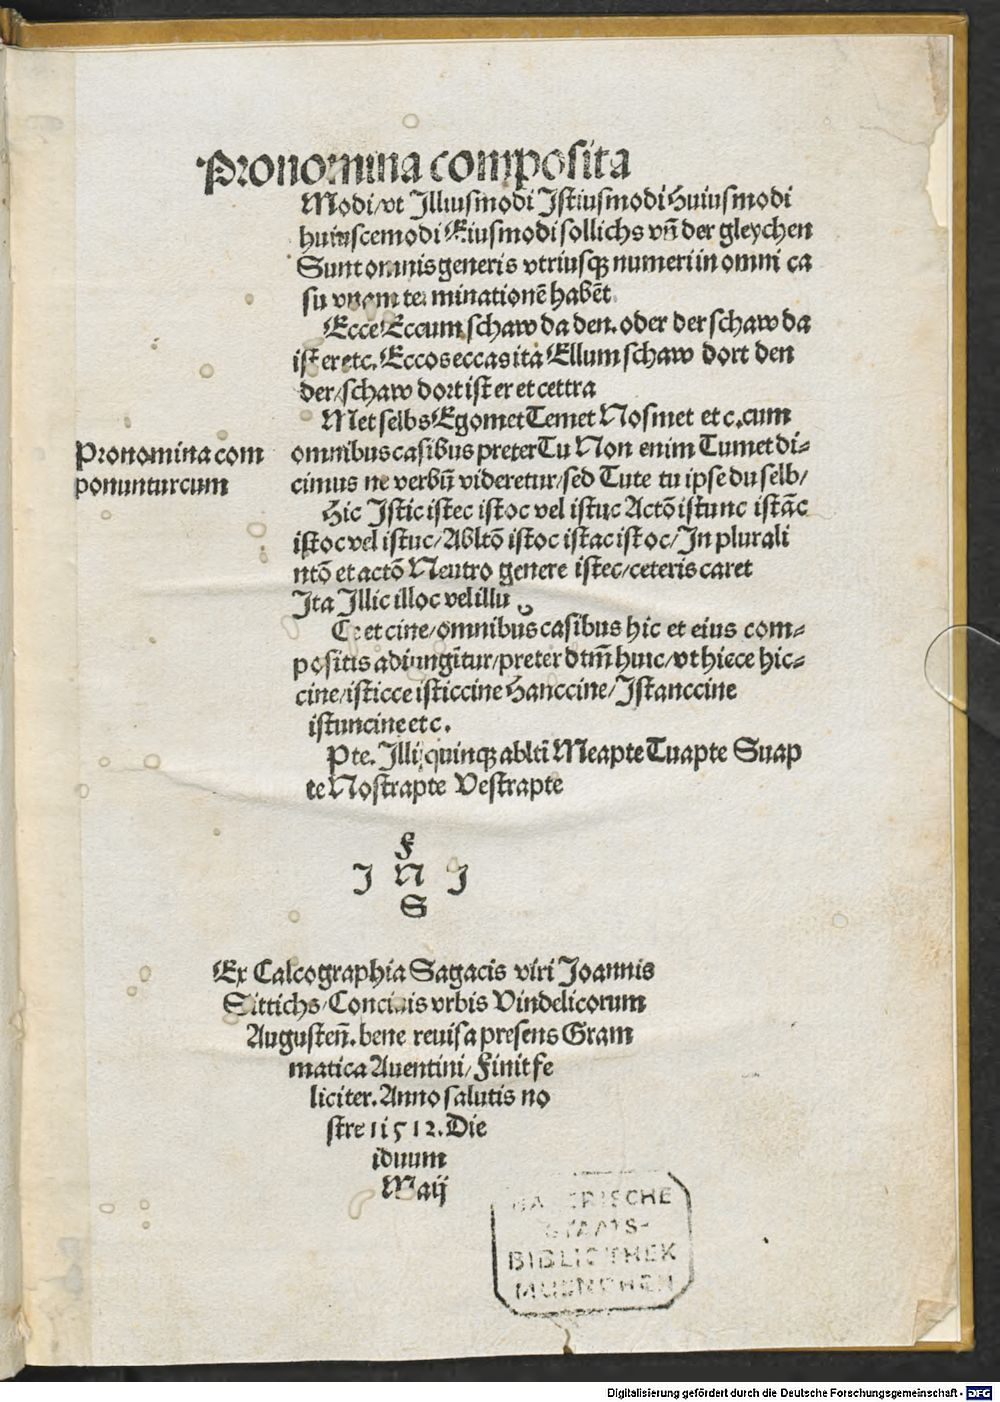 Pronomina composita
Modi/vt Illiusmodi Istiusmodi Huiusmodi
huiuscemodi Eiusmodi sollichs vn̄ der gleychen
Sunt omnis generis vtriusqꝫ numeri in omni ca
su vnam terminationē habēt
Ecce Eccum schaw da den. oder der schaw da
ist er etc. Eccos eccas ita Ellum schaw dort den
der/schaw dort ist er et cettra
Met selbs Egomet Temet Nosmet etc. cum
Pronomina com
ponuntur cum
omnibus casibus preter Tu Non enim Tumet di-
cimus ne verbū videretur/sed Tute tu ipse du selb/
Hic Istic istec istoc vel istuc Actō istunc istāc
istoc vel istuc/Abltō istoc istac istoc/In plurali
ntō et actō Neutro genere istec/ceteris caret
Ita Illic illoc vel illu
Ce et cine/omnibus casibus hic et eius com-
positis adiungītur/preter dtm̄ huic/vt hicce hic-
cine/isticce isticcine Hanccine/Istanccine
istuncine etc.
Pte. Illi quinqꝫ ablti Meapte Tuapte Suap
te Nostrapte Vestrapte
F
I N I
S
Ex Calcographia Sagacis viri Joannis
Sittichs/Conciuis vrbis Vindelicorum
Augusten̄. bene reuisa presens Gram
matica Auentini/Finit fe
liciter. Anno salutis no
stre 1512. Die
iduum
Maij
BAYERISCHE
STAATS-
BIBLIOTHEK
MUENCHEN
Digitalisierung gefördert durch die Deutsche Forschungsgemeinschaft - DFG